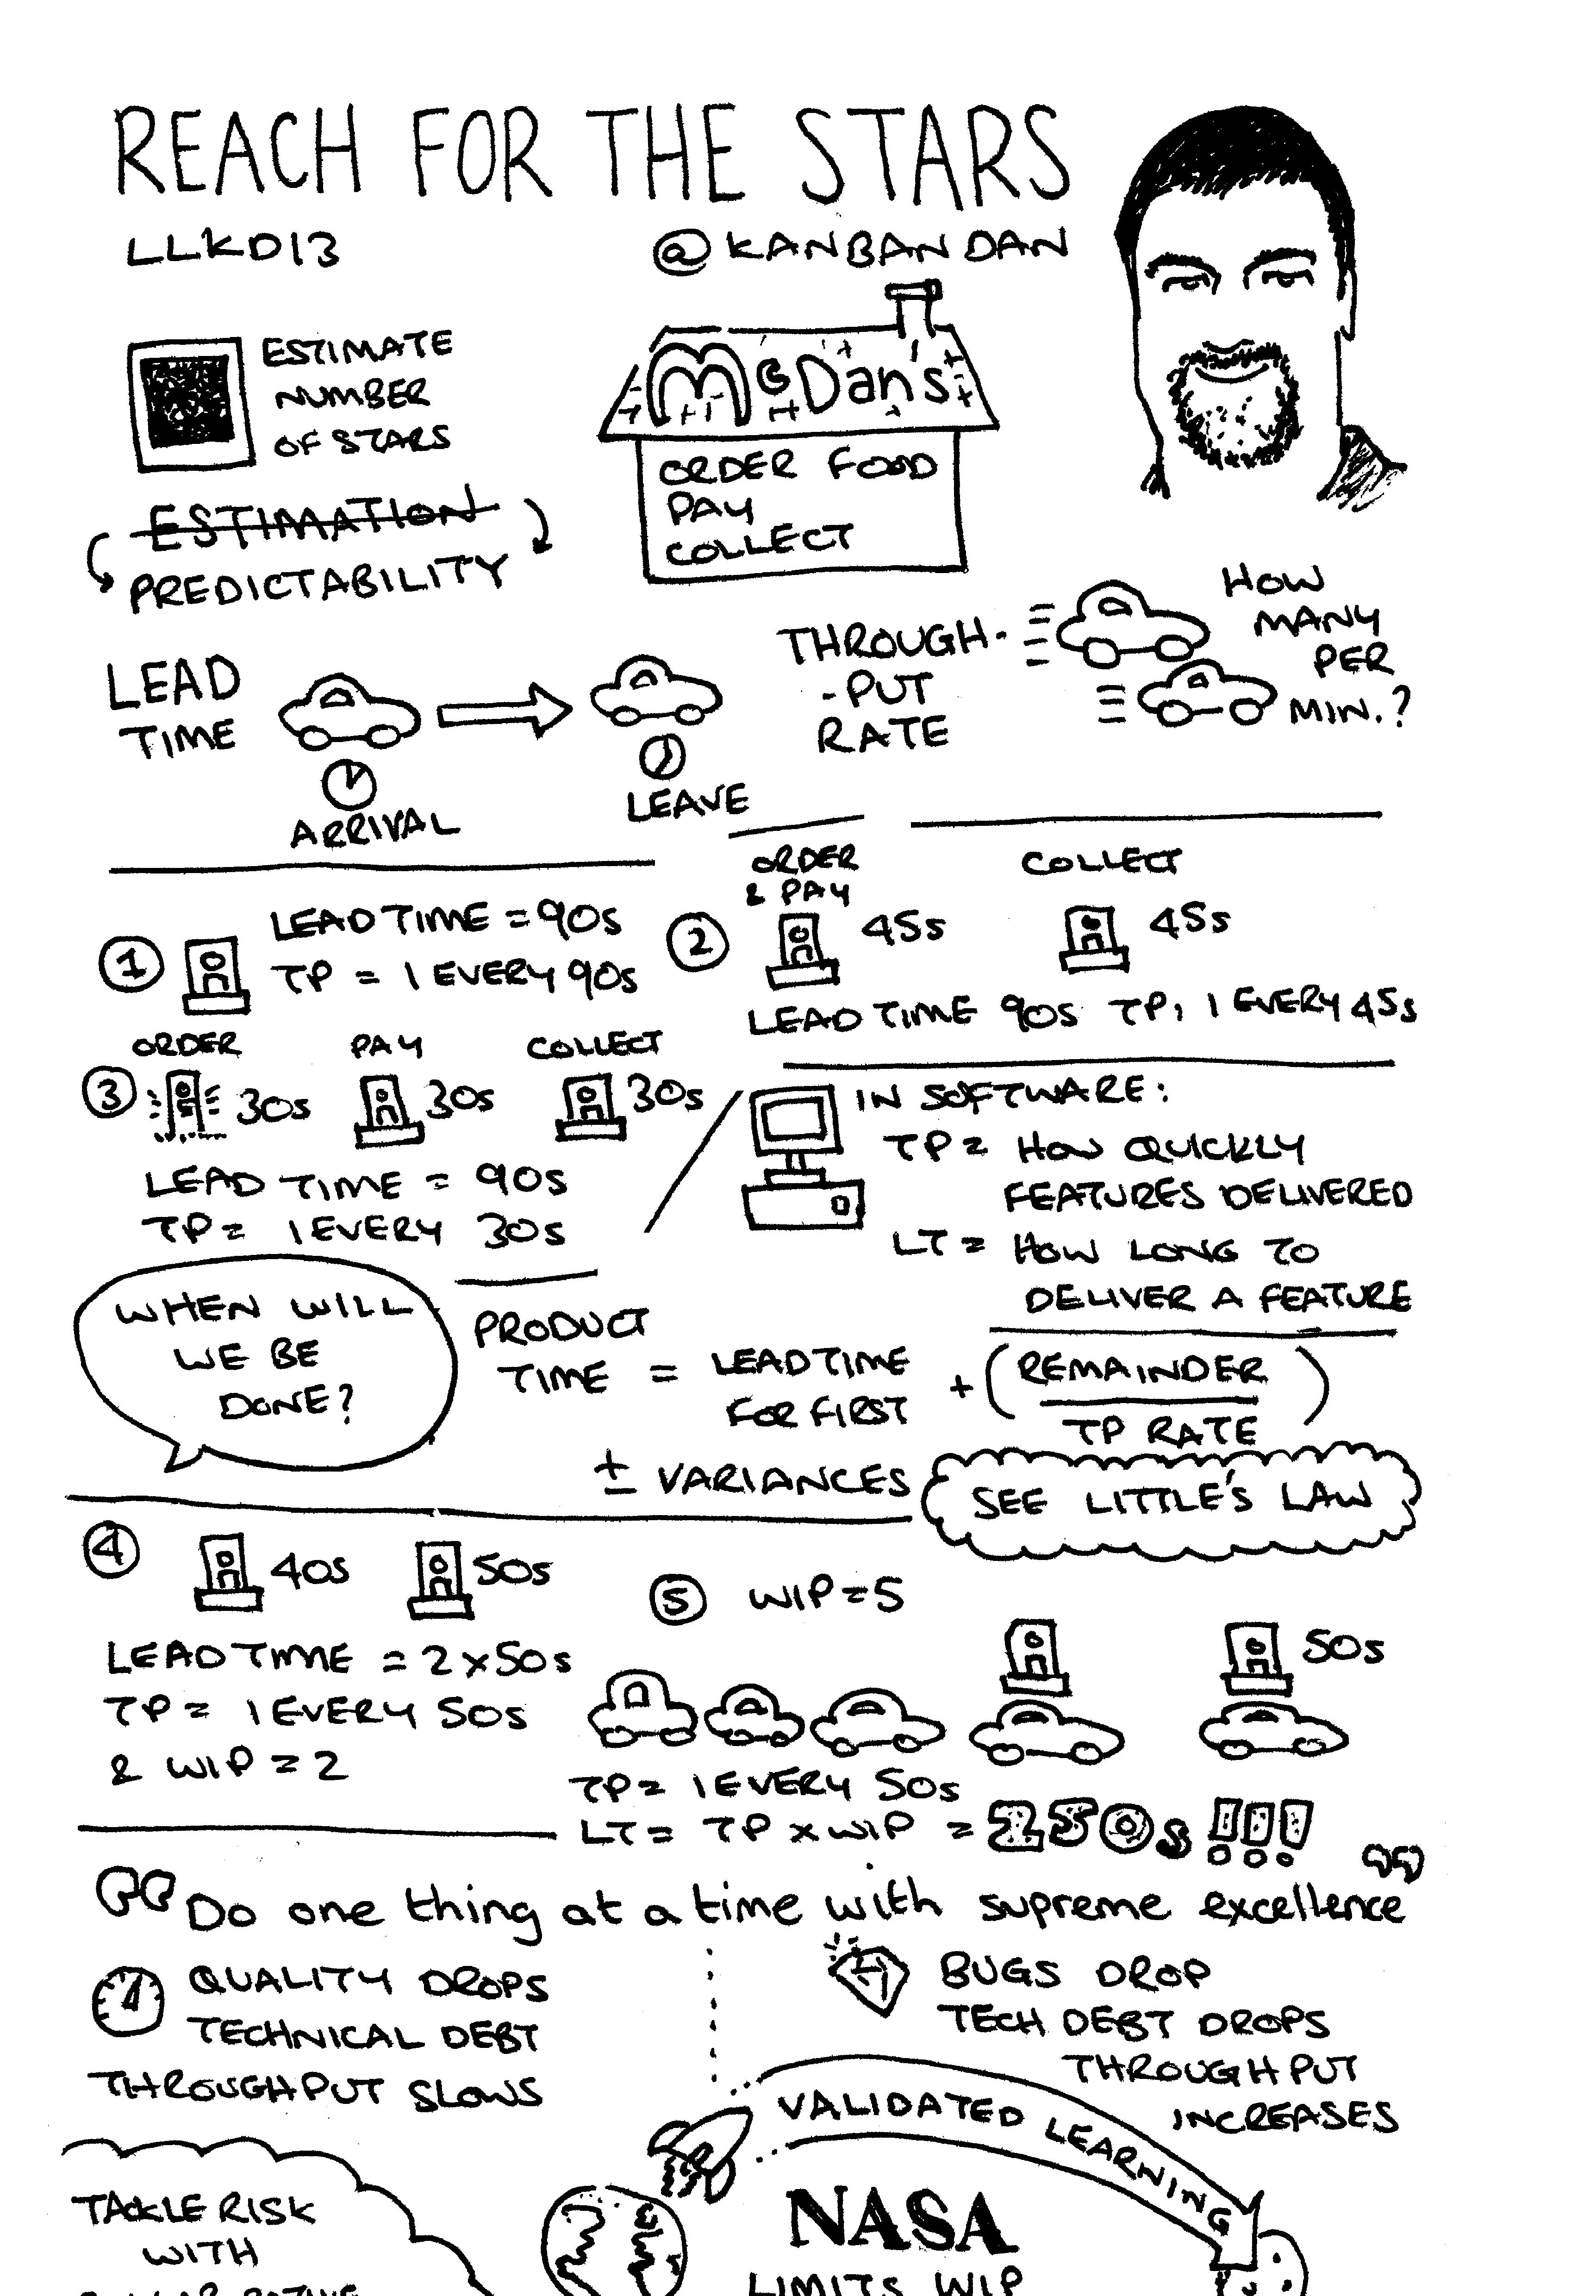 REACH FOR THE STARS
LLKD13
@KANBANDAN
ESTIMATE
NUMBER
OF STARS
McDan's
ORDER FOOD
PAY
COLLECT
ESTIMATION
PREDICTABILITY
LEAD
TIME
ARRIVAL
LEAVE
THROUGH-
-PUT
RATE
HOW
MANY
PER
MIN.?
1
LEAD TIME = 90s
TP = 1 EVERY 90s
2
ORDER
& PAY
45s
COLLECT
45s
LEAD TIME 90s TP, 1 EVERY 45s
3
ORDER
30s
PAY
30s
COLLECT
30s
LEAD TIME = 90s
TP = 1 EVERY 30s
IN SOFTWARE:
TP = HOW QUICKLY
FEATURES DELIVERED
LT = HOW LONG TO
DELIVER A FEATURE
WHEN WILL
WE BE
DONE?
PRODUCT
TIME = LEAD TIME
FOR FIRST
+ (REMAINDER
TP RATE)
± VARIANCES
SEE LITTLE'S LAW
4
40s
50s
LEAD TIME = 2 x 50s
TP = 1 EVERY 50s
& WIP = 2
5 WIP = 5
50s
TP = 1 EVERY 50s
LT = TP x WIP = 250s !!!
“Do one thing at a time with supreme excellence”
QUALITY DROPS
TECHNICAL DEBT
THROUGHPUT SLOWS
BUGS DROP
TECH DEBT DROPS
THROUGHPUT
INCREASES
VALIDATED LEARNING
TACKLE RISK
WITH
NASA
LIMITS WIP